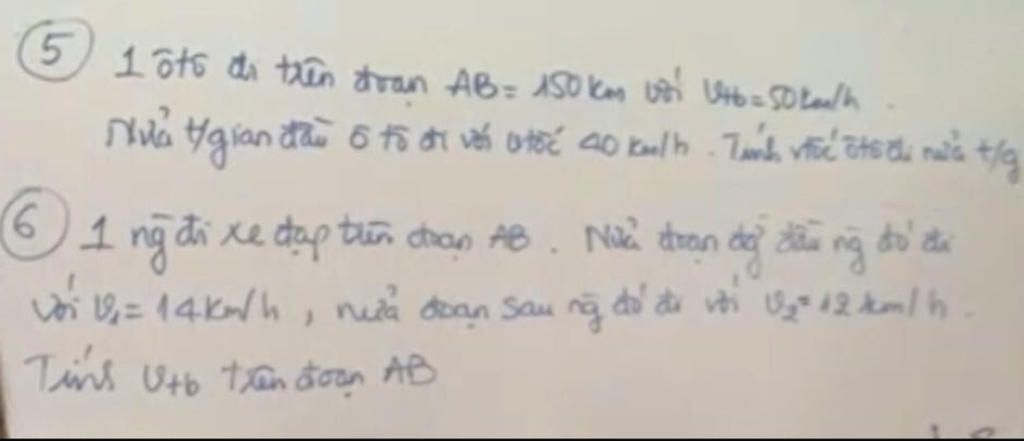 5 1 ôtô đi trên đoạn AB = 150 km với Vtb = 50 km/h.
Nửa t/gian đầu ô tô đi với vtốc 40 km/h. Tính vtốc ôtô đi nửa t/g
6 1 ng̃ đi xe đạp trên đoạn AB. Nửa đoạn đg̀ đầu ng̃ đó đi
với v₁ = 14 km/h, nửa đoạn sau ng̃ đó đi với v₂ = 12 km/h.
Tính Vtb trên đoạn AB